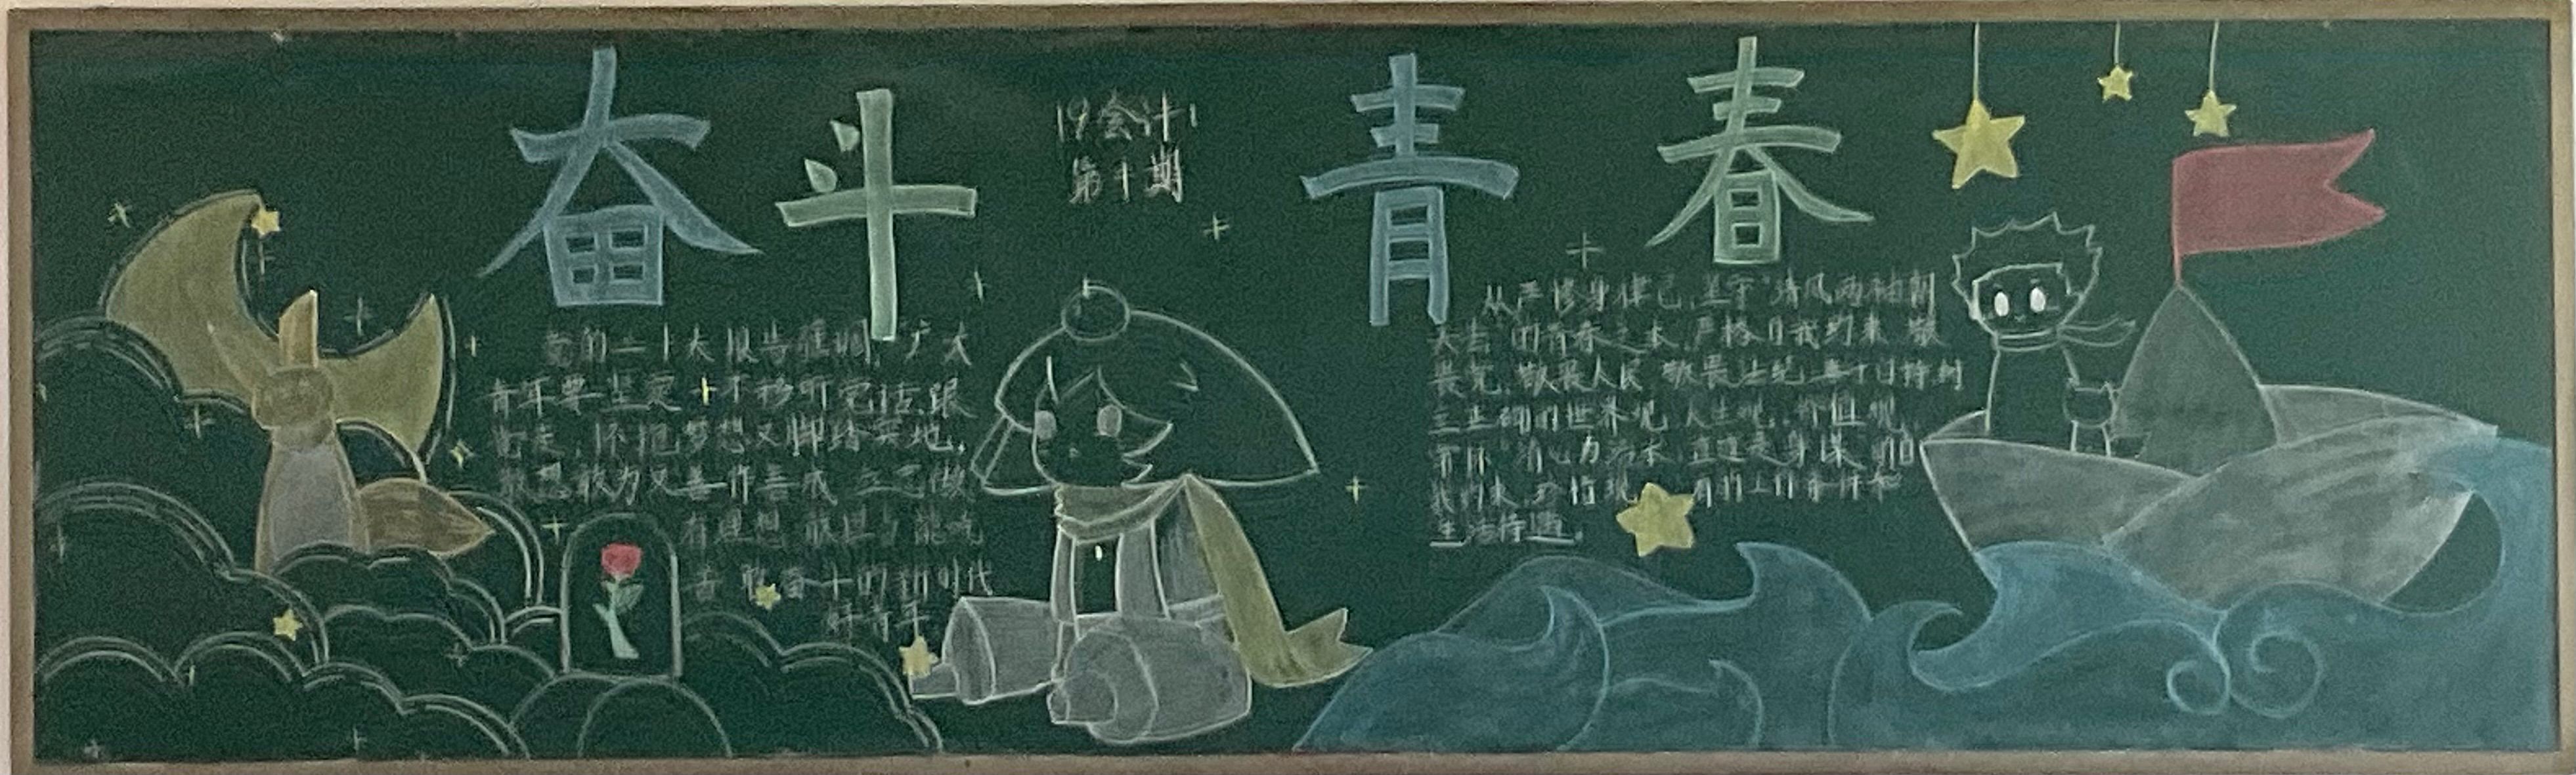 奋斗
19会计1
第十期
青春
党的二十大报告强调，广大
青年要坚定不移听党话、跟
党走，怀抱梦想又脚踏实地，
敢想敢为又善作善成，立志做
有理想、敢担当、能吃
苦、肯奋斗的新时代
好青年
从严修身律己，坚守“清风两袖朝
天去”的青春之本，严格自我约束，敬
畏党、敬畏人民、敬畏法纪，
立正确的世界观、人生观、价值观，
牢怀“清心为治本，直道是身谋”的自
我约束，珍惜现有的工作条件和
生活待遇。